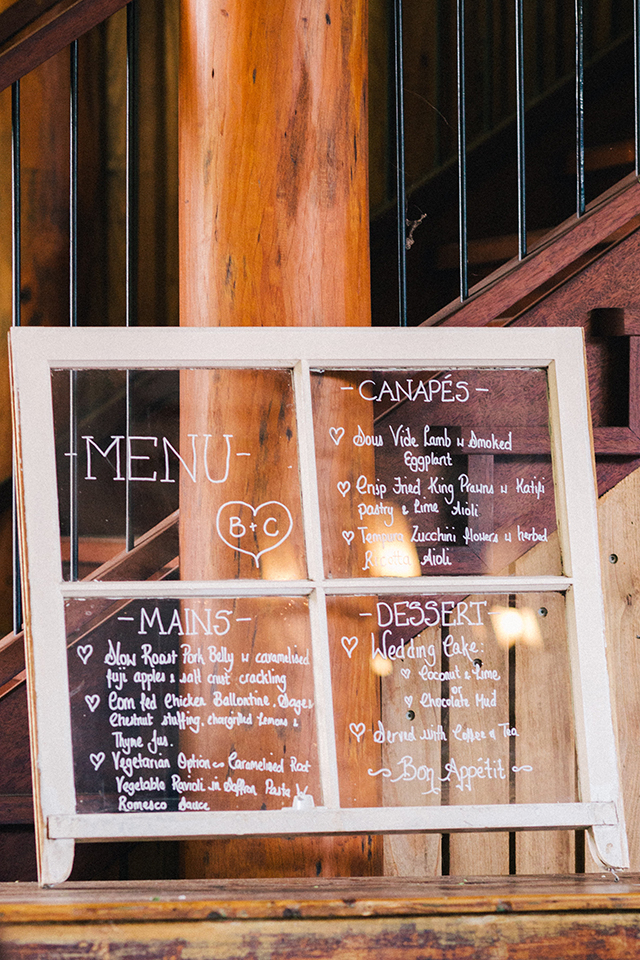 -MENU-
B+C
-CANAPÉS-
Sous Vide Lamb w Smoked
Eggplant
Crisp Fried King Prawns w Katifi
pastry & Lime Aioli
Tempura Zucchini flowers w herbed
Ricotta Aioli
-MAINS-
Slow Roast Pork Belly w caramelised
fuji apples & salt crust crackling
Corn fed Chicken Ballontine, Sage &
Chestnut stuffing, chargrilled Lemons &
Thyme Jus.
Vegetarian Option ~ Caramelised Root
Vegetable Ravioli in Saffron Pasta w
Romesco Sauce
-DESSERT-
Wedding Cake:
Coconut & Lime
or
Chocolate Mud
Served with Coffee & Tea
~Bon Appétit~